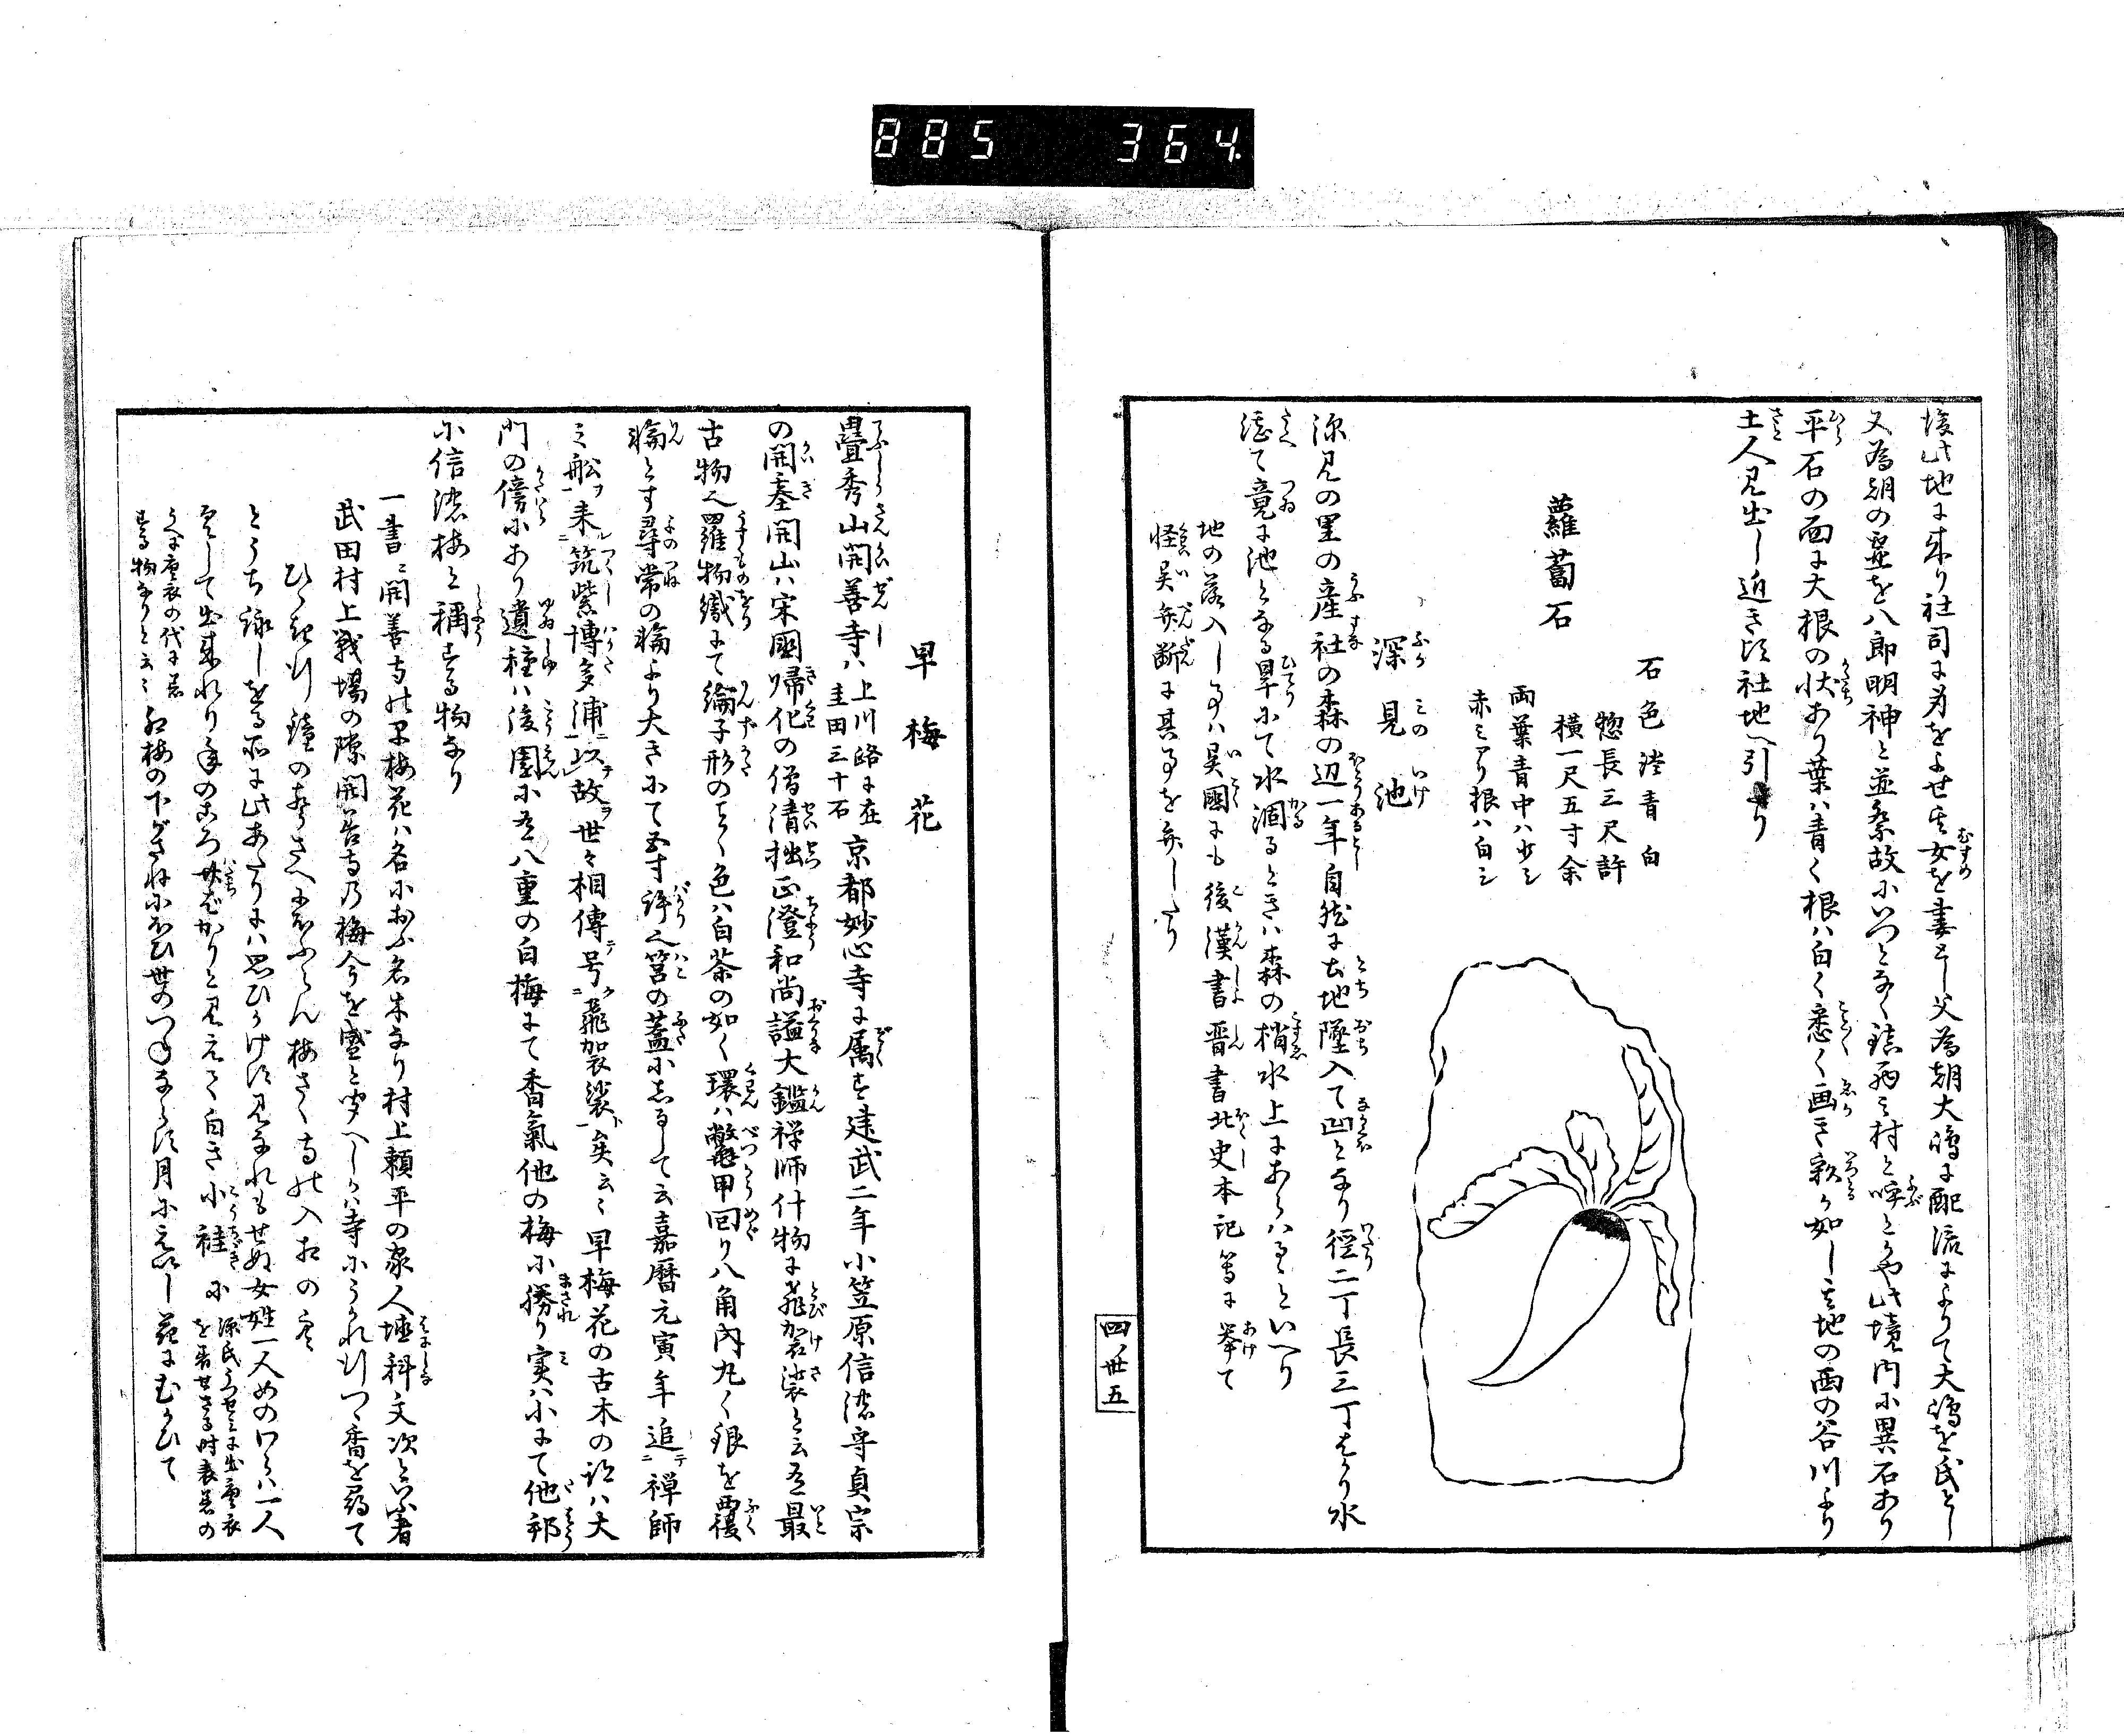 885 364.
後此地に来り社司に身をよせ其女を妻とし父為朝大嶋に配流によりて大嶋を氏とし
又為朝の霊を八郎明神と並祭故にいつとなく鎮西村と呼とかや此境内に異石あり
平石の面に大根の状あり葉は青く根は白く悉く画き
土人見出し近き頃社地へ引たり
蘿蔔石
石色淡青白
惣長三尺許
横一尺五寸余
両葉青中ハ少シ
赤ミアリ根ハ白シ
深見池
深見の里の産社の森の辺一年自然に土地墜入て凹となり径二丁長三丁はかり水
湛て竟に池となる旱にて水涸るときは森の梢水上にあらはるといへり
地の落入し事は異國にも後漢書晋書北史本記等に挙て
怪異弁断に其事を弁したり
四ノ卅五
早梅花
疊秀山開善寺ハ上川路に在
圭田三十石
京都妙心寺に属す建武二年小笠原信濃守貞宗
の開基開山ハ宋國帰化の僧清拙正澄和尚謚大鑑禅師什物に飛袈裟と云有最
古物也羅物織にて綸子形のことく色ハ白茶の如く環ハ鼈甲回り八角内丸く銀を覆
輪とす尋常の輪より大きにて五寸許也筥の蓋にしるして云嘉暦元寅年追禅師
之舩来筑紫博多浦以故世々相傳号飛袈裟矣云々早梅花の古木の跡ハ大
門の傍にあり遺種ハ後園に有八重の白梅にて香氣他の梅に勝り実ハ小にて他邦
に信濃梅と稱する物なり
一書ニ開善寺の早梅花ハ名におふ名木なり村上頼平の家人埴科文次といふ者
武田村上戦場の隙開善寺の梅今を盛と聞へしかハ寺にうかれ行つゝ香を尋て
ひゝき行鐘の声さへにほふらん梅さく寺の入相の空
とうち詠しをる所に此あたりにハ思ひかけす見なれもせぬ女姓一人めのわらハ一人
具して出来れり年のころ廿ばかりと見えて白き小袿に
紅梅の下がさねにほひ世のつねならす月にえいし花にむかひて